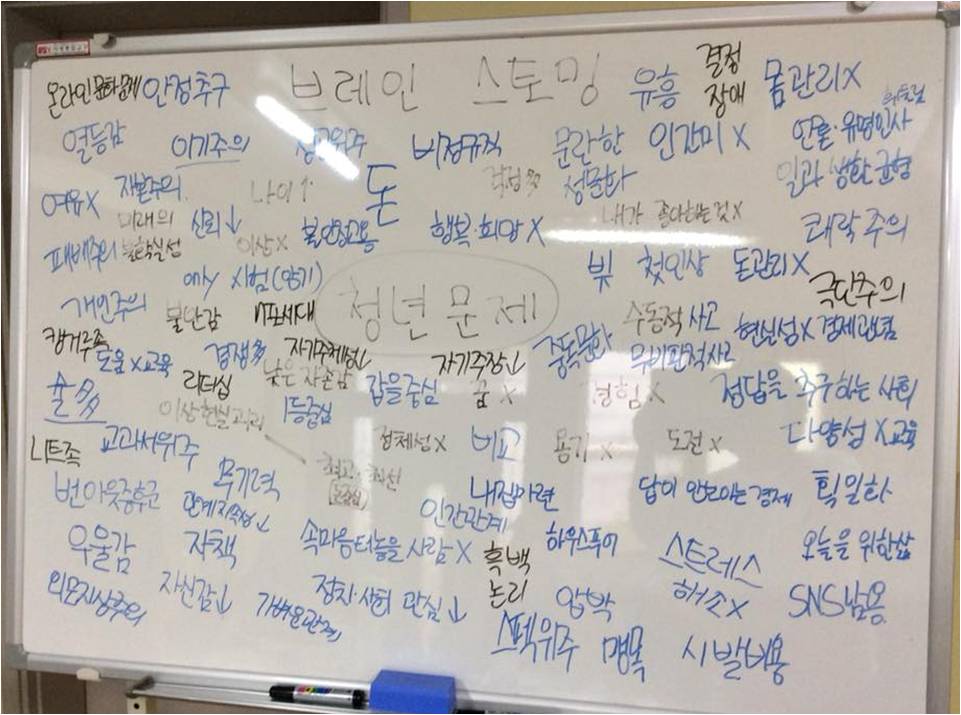 브레인 스토밍
온라인 문화문제 안정추구 유흥 결정 장애 몸관리X
열등감 이기주의 비정규직 문란한 성문화 인간미 X 언론·유명인사
여유X 자본주의 나이↑ 돈 걱정多 일과 생활 균형
미래의 불확실성 신뢰↓ 이상X 불안정고용 행복·희망X 내가 좋아하는 것X 쾌락주의
패배주의 only 시험(암기) 빚 첫인상 돈관리X
개인주의 불안감 N포세대 청년문제 수동적 사고 현실성X 극단주의
캥거루족 도움X교육 경쟁多 자기주체성↓ 자기주장↓ 중독문화 무비판적사고 경제관념
술多 리더십 낮은 자존감 갑을중심 꿈X 경험X 정답을 추구하는 사회
이상현실괴리 1등중심
니트족 교과서위주 정체성X 비교 용기X 도전X 다양성X교육
최고·최선
번아웃증후군 무기력 관계지속성↓ 내집마련 답이 안보이는경제 획일화
인간관계
우울감 자책 속마음터놓을사람X 흑백논리 하우스푸어 스트레스 해소X 오늘을 위한삶
외모지상주의 자신감↓ 가벼운관계 정치·사회 관심↓ 압박 SNS남용
스펙위주 명목 시발비용